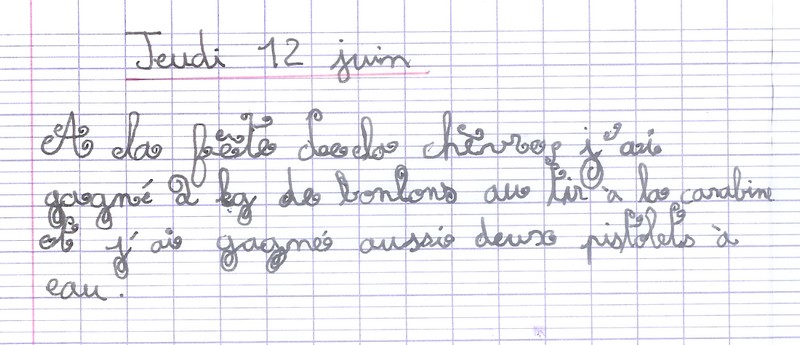 Jeudi 12 juin
A la fête de la chèvre, j'ai
gagné 2 kg de bonbons au tir à la carabine
et j'ai gagné aussi deux pistolets à
eau.